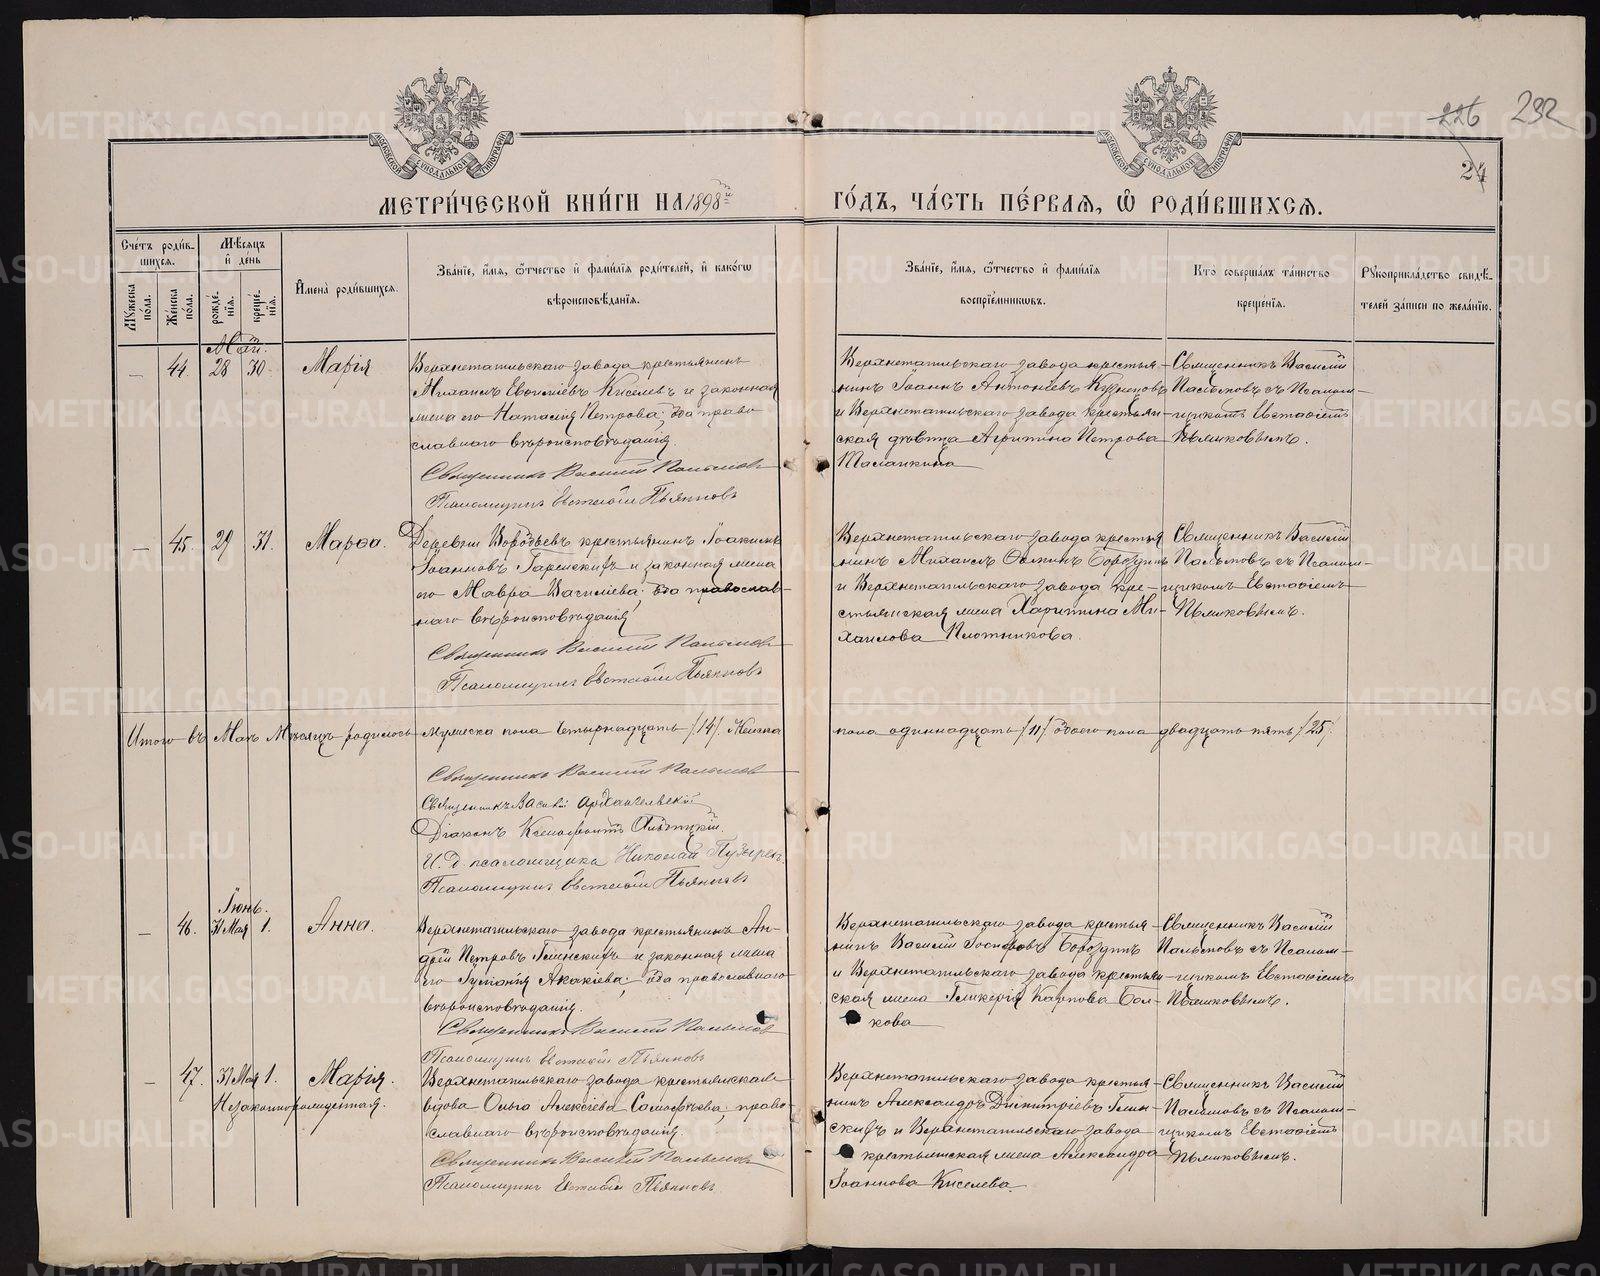 226 232
24
МЕТРИ́ЧЕСКОЙ КНИ́ГИ НА 1898й
ГО́ДЪ, ЧА́СТЬ ПЕ́РВАЯ, Ѿ РОДИ́ВШИХСЯ.
Сче́тъ роди́вшихся.
Мѣ́сяцъ и де́нь
Му́жеска по́ла.
Же́нска по́ла.
рожде́нїя.
креще́нїя.
Имена̀ роди́вшихся.
Зва́нїе, и́мя, ѿтчество и фами́лїя роди́телей, и како́гѡ вѣроисповѣ́данїя.
Зва́нїе, и́мя, ѿтчество и фами́лїя воспрїе́мникѡвъ.
Кто̀ соверша́лъ та́инство креще́нїя.
Рукоприкла́дство свидѣ́телей за́писи по жела́нїю.
Май.
— 44. 28 30. Марія
Верхнетагильскаго завода крестьянинъ
Михаилъ Киселевъ и законная
жена его Наталія Петрова; оба право-
славнаго вѣроисповѣданія.
Священникъ Василій Пальмовъ
Псаломщикъ Евстафій Пьянковъ
Верхнетагильскаго завода крестья-
нинъ Іоаннъ Антоніевъ Кузнецовъ
и Верхнетагильскаго завода крестьян-
ская дѣвица Агрипина Петрова
Таланкина
Священникъ Василій
Пальмовъ съ Псалом-
щикомъ Евстафіемъ
Пьянковымъ.
— 45. 29 31. Марѳа.
Деревни Воробьевъ крестьянинъ Іоакимъ
Іоанновъ и законная жена
его Мавра Василіева; оба православ-
наго вѣроисповѣданія
Священникъ Василій Пальмовъ
Псаломщикъ Евстафій Пьянковъ
Верхнетагильскаго завода крестья-
нинъ Михаилъ Бороздинъ
и Верхнетагильскаго завода кре-
стьянская жена Харитина Ми-
хаилова Плотникова.
Священникъ Василій
Пальмовъ съ Псалом-
щикомъ Евстафіемъ
Пьянковымъ.
Итого въ Маѣ Мѣсяцѣ родилось мужеска пола четырнадцать /14/. Женска
пола одиннадцать /11/ обоего пола двадцать пять /25/.
Священникъ Василій Пальмовъ
Священникъ Василій Архангельскій
Діаконъ Ксенофонтъ
И. д. псаломщика Николай Пузырев
Псаломщикъ Евстафій Пьянковъ
Іюнь.
— 46. 31 Мая 1. Анна.
Верхнетагильскаго завода крестьянинъ Ан-
дрей Петровъ Глинскихъ и законная жена
его Іуліанія Акакіева; оба православнаго
вѣроисповѣданія.
Священникъ Василій Пальмовъ
Псаломщикъ Евстафій Пьянковъ
Верхнетагильскаго завода крестья-
нинъ Василій Іосифовъ Бороздинъ
и Верхнетагильскаго завода крестьян-
ская жена Гликерія Карпова Бал-
кова
Священникъ Василій
Пальмовъ съ Псалом-
щикомъ Евстафіемъ
Пьянковымъ.
— 47. 31 Мая 1. Марія.
Незаконнорожденная.
Верхнетагильскаго завода крестьянская
вдова Ольга Алексіева; право-
славнаго вѣроисповѣданія.
Священникъ Василій Пальмовъ
Псаломщикъ Евстафій Пьянковъ
Верхнетагильскаго завода крестья-
нинъ Александръ Димитріевъ Глин-
скихъ и Верхнетагильскаго завода
крестьянская жена Александра
Іоаннова Киселева.
Священникъ Василій
Пальмовъ съ Псалом-
щикомъ Евстафіемъ
Пьянковымъ.
METRIKI.GASO-URAL.RU